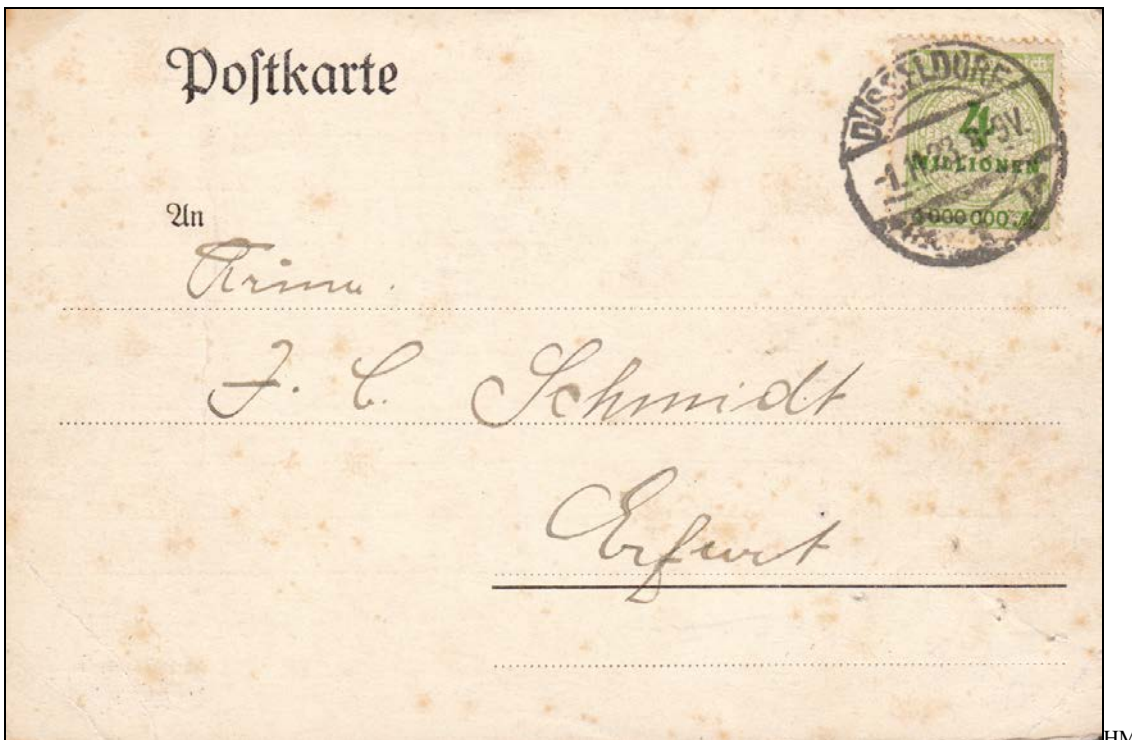 Postkarte
DÜSSELDORF
-1.11.23. 8-9V.
4
MILLIONEN
An
Firma.
J. C. Schmidt
Erfurt
HM